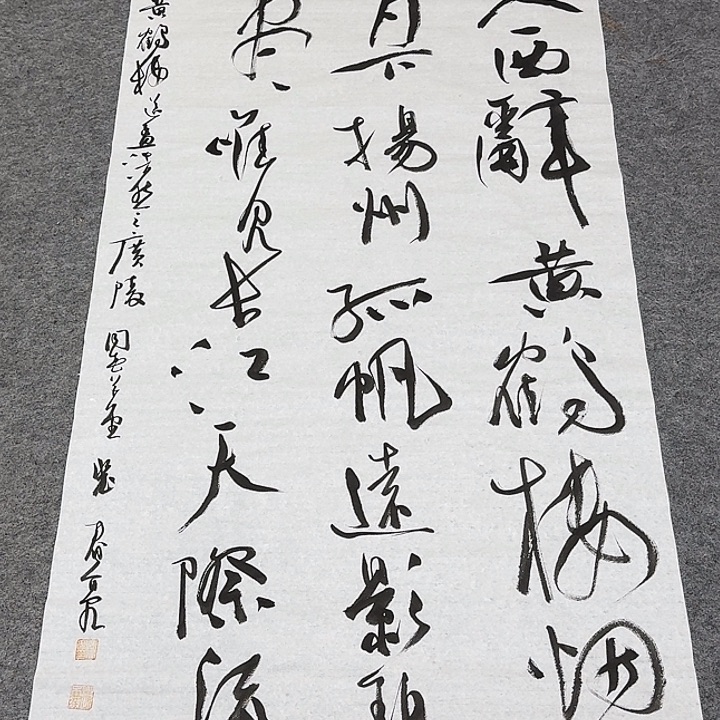 人西辭黄鶴楼烟
月下揚州孤帆遠影碧
尽唯見長江天際流
黄鶴楼送孟浩然之廣陵